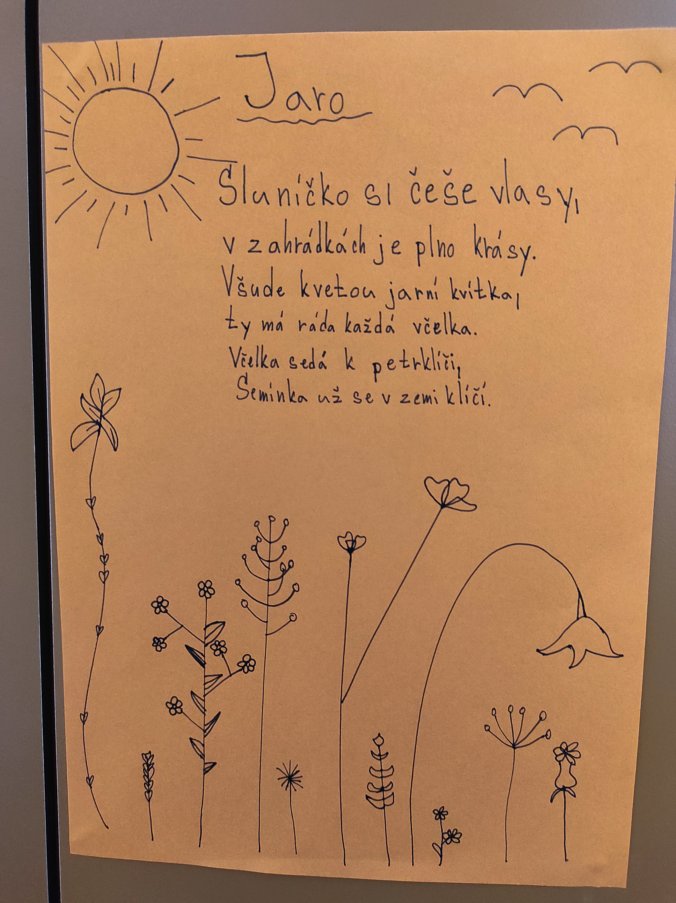 Jaro
Sluníčko si češe vlasy,
v zahrádkách je plno krásy.
Všude kvetou jarní kvítka,
ty má ráda každá včelka.
Včelka sedá k petrklíči,
Semínka už se v zemi klíčí.